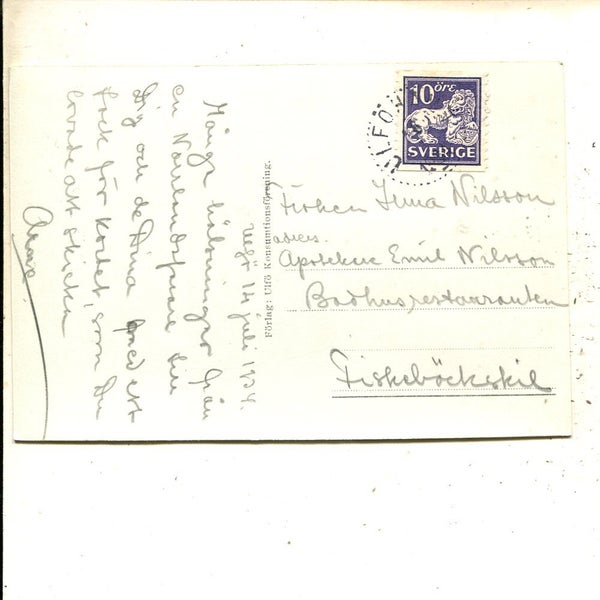 Ulfö 14 juli 1934.
Många hälsningar från
en Norrlandsfarare till
Dig och de Dina med ett
tack för kortet, som Du
lovade att skicka
Förlag: Ulfö Konsumtionsförening.
10 öre
SVERIGE
ULFÖH
Fröken Inna Nilsson
adress.
Apotekare Emil Nilsson
Badhusrestauranten
Fiskebäckskil